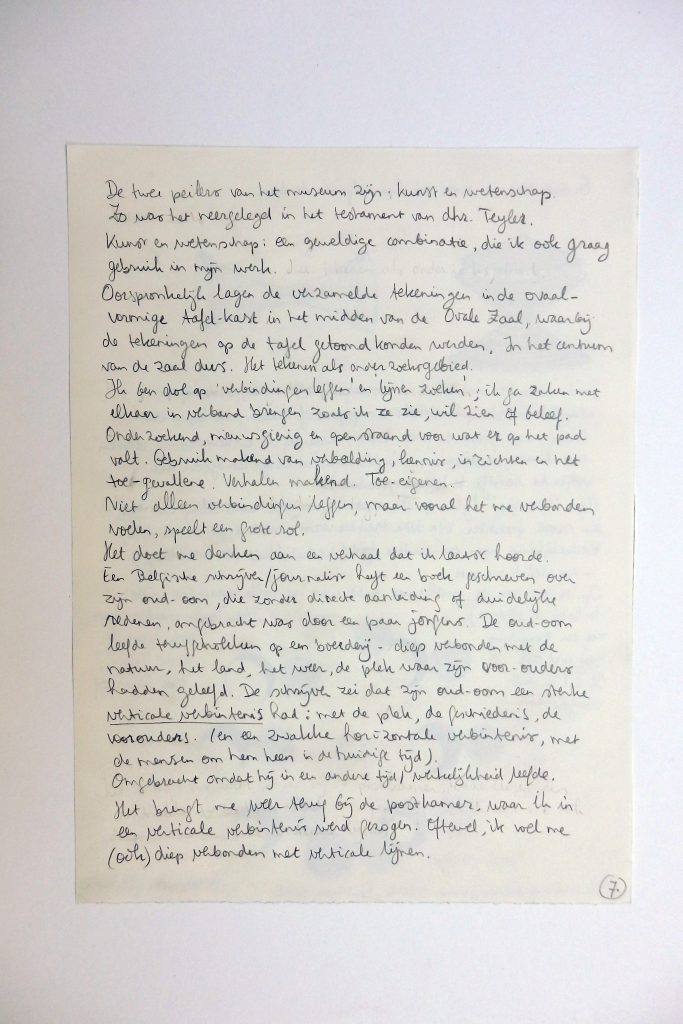 De twee peilers van het museum zijn: kunst en wetenschap.
Zo was het neergelegd in het testament van dhr. Teyler.
Kunst en wetenschap: een geweldige combinatie, die ik ook graag
gebruik in mijn werk.
Oorspronkelijk lagen de verzamelde tekeningen in de ovaal-
vormige tafel-kast in het midden van de Ovale Zaal, waarbij
de tekeningen op de tafel getoond konden werden. In het centrum
van de zaal dus. Het tekenen als onderzoeksgebied.
Ik ben dol op 'verbindingen leggen' en 'lijnen zoeken'; ik ga zaken met
elkaar in verband brengen zoals ik ze zie, wil zien of beleef.
Onderzoekend, nieuwsgierig en openstaand voor wat er op het pad
valt. Gebruik makend van verbeelding, kennis, inzichten en het
toe-gevallene. Verhalen makend. Toe-eigenen.
Niet alleen verbindingen leggen, maar vooral het me verbonden
voelen, speelt een grote rol.
Het doet me denken aan een verhaal dat ik laatst hoorde.
Een Belgische schrijver/journalist heeft een boek geschreven over
zijn oud-oom, die zonder directe aanleiding of duidelijke
redenen, omgebracht was door een paar jongens. De oud-oom
leefde teruggetrokken op een boerderij - diep verbonden met de
natuur, het land, het weer, de plek waar zijn voor-ouders
hadden geleefd. De schrijver zei dat zijn oud-oom een sterke
verticale verbintenis had: met de plek, de geschiedenis, de
voorouders. (en een zwakke horizontale verbintenis, met
de mensen om hem heen in de huidige tijd).
Omgebracht omdat hij in een andere tijd/werkelijkheid leefde.
Het brengt me weer terug bij de postkamer, waar ik in
een verticale verbintenis werd gezogen. Oftewel, ik voel me
(ook) diep verbonden met verticale lijnen.
7.